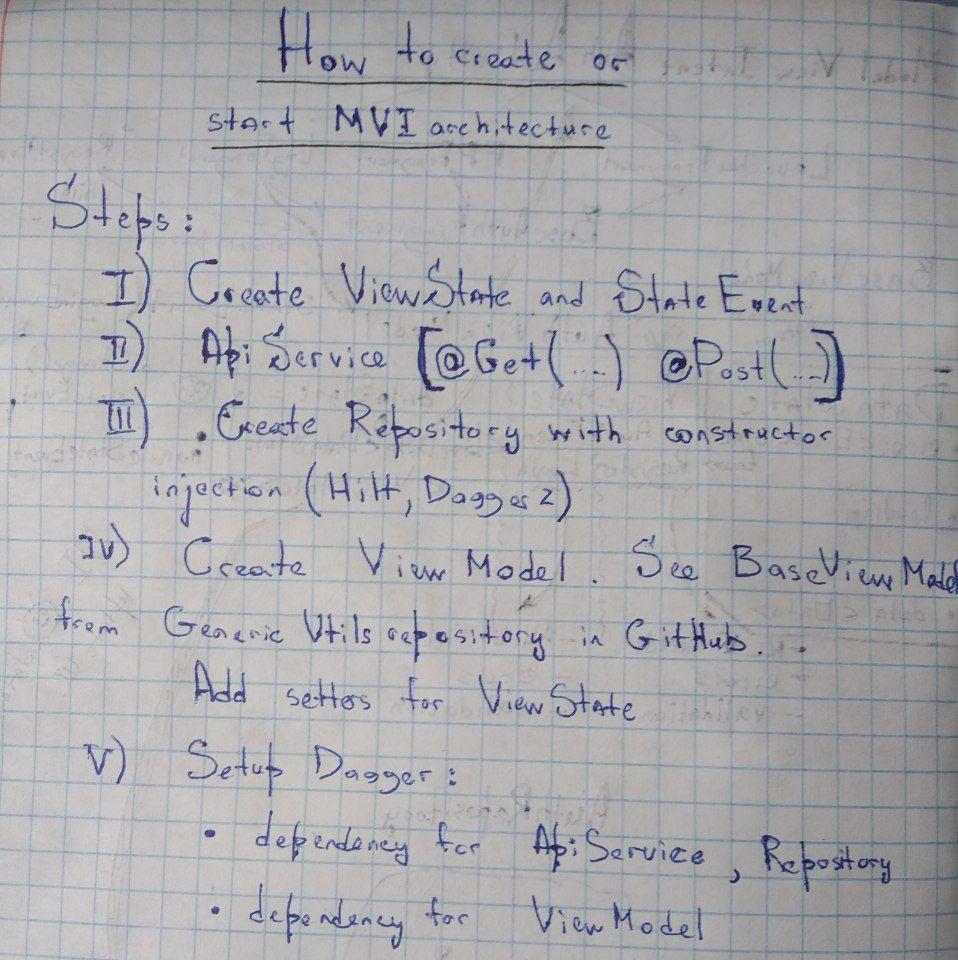 How to create or
start MVI architecture
Steps:
I) Create ViewState and StateEvent
II) ApiService [@Get(....) @Post(....)]
III) . Create Repository with constructor
injection (Hilt, Dagger 2)
IV) Create ViewModel. See BaseViewModel
from Generic Utils repository in GitHub.
Add setters for ViewState
V) Setup Dagger:
• dependency for ApiService, Repository
• dependency for ViewModel